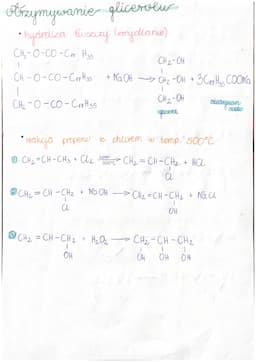 Otrzymywanie glicerolu
• hydroliza tłuszczy (zmydlanie)
CH₂-O-CO-C₁₇H₃₅
CH-O-CO-C₁₇H₃₅ + NaOH → CH₂-OH
CH-OH + 3C₁₇H₃₅COONa
CH₂-O-CO-C₁₇H₃₅ CH₂-OH
glicerol stearynian sodu
• reakcja propenu z chlorem w temp. 500°C
① CH₂=CH-CH₃ + Cl₂ → 500°C CH₂=CH-CH₂ + HCl
Cl
② CH₂=CH-CH₂ + NaOH → CH₂=CH-CH₂ + NaCl
Cl OH
③ CH₂=CH-CH₂ + H₂O₂ → CH₂-CH-CH₂
OH OH OH OH